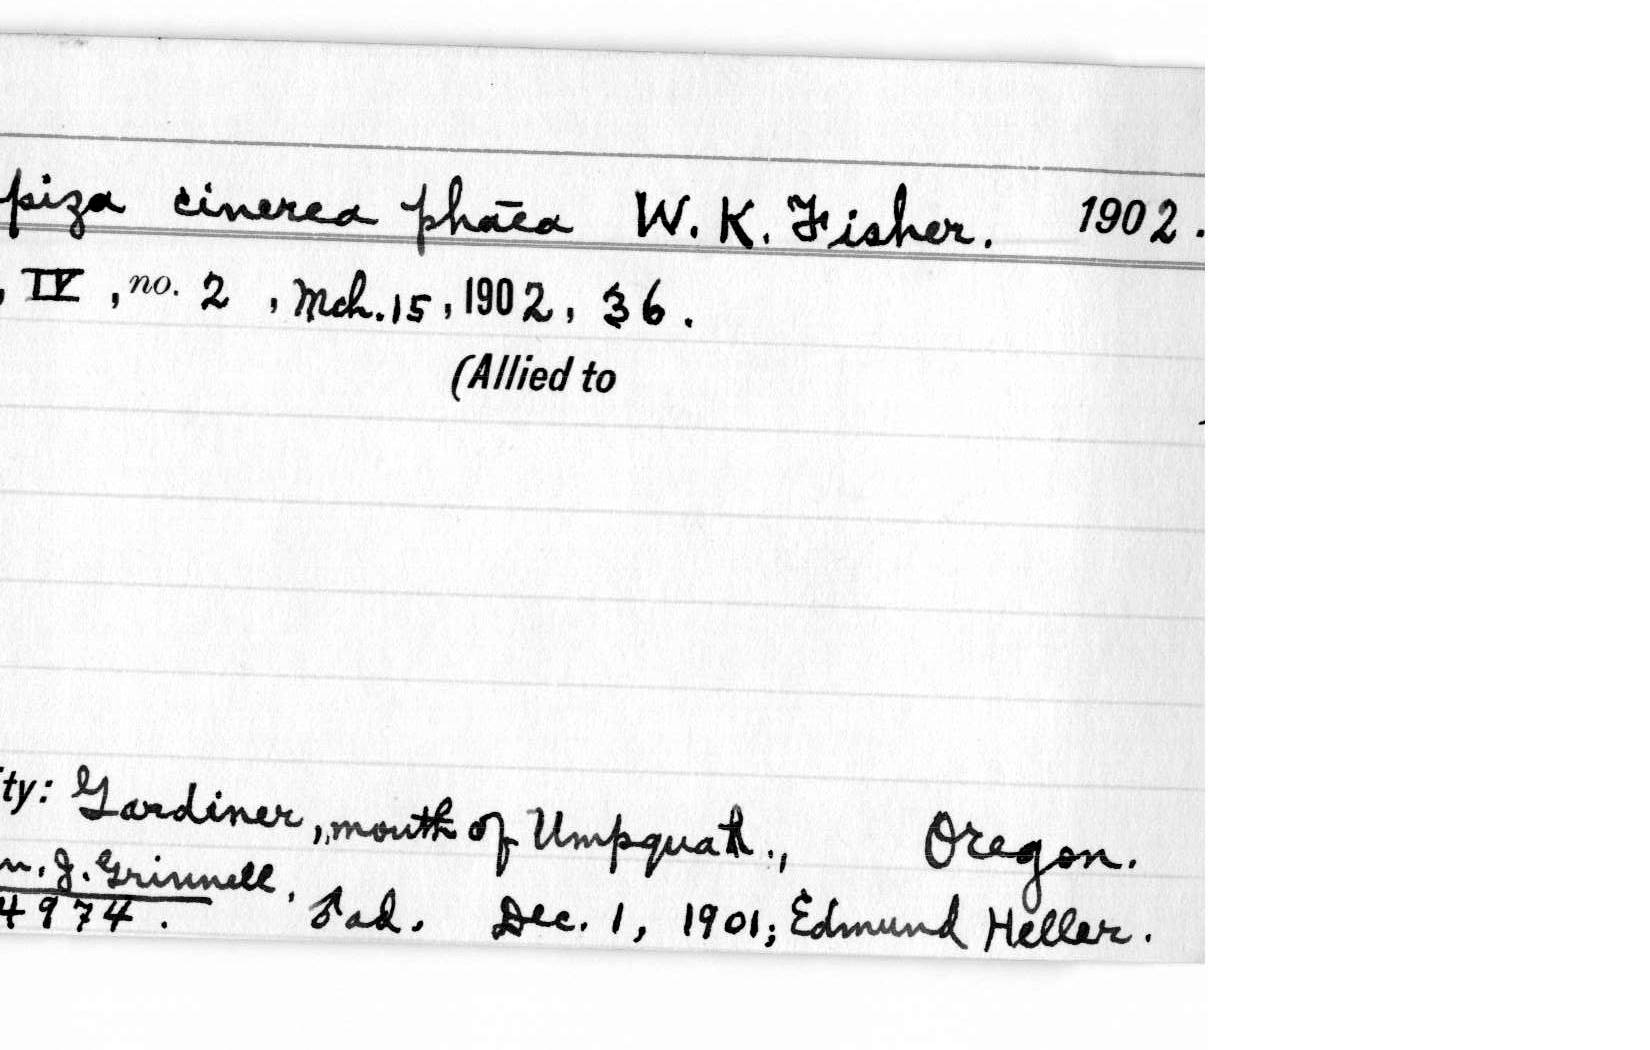 piza cinerea phaēa W. K. Fisher. 1902.
, IV, no. 2, Mch. 15, 1902, 36.
(Allied to
ity: Gardiner, mouth of Umpquah., Oregon.
n. J. Grinnell.
4974. ♂ ad. Dec. 1, 1901; Edmund Heller.